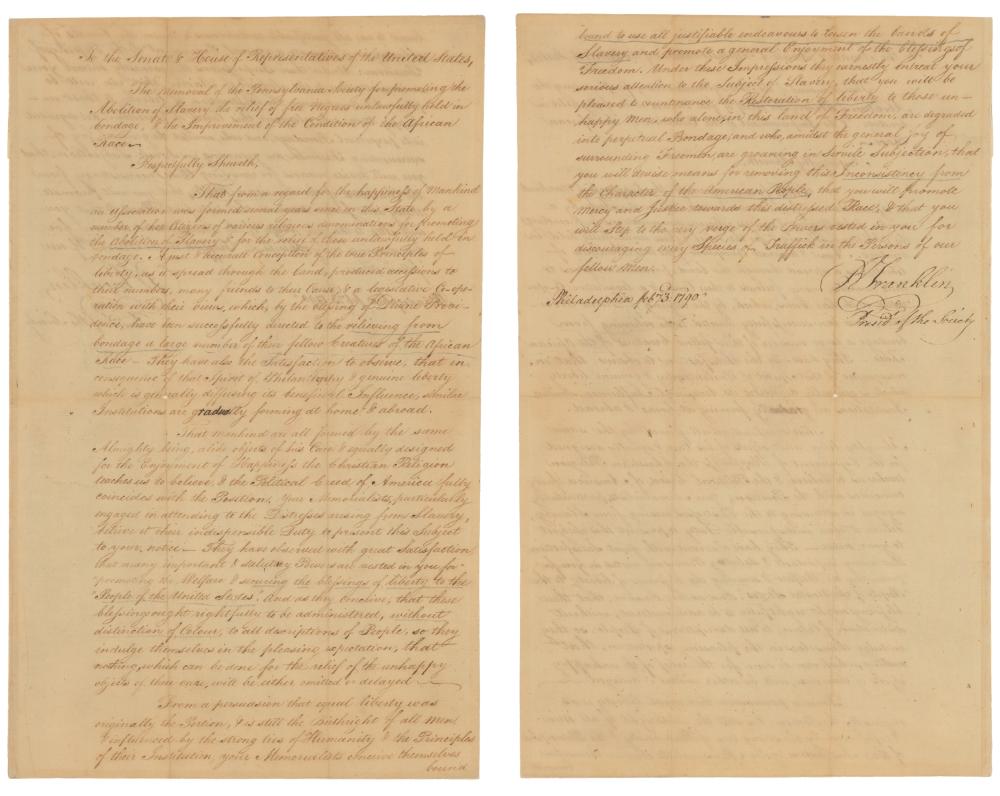 To the Senate & House of Representatives of the United States,
The Memorial of the Pennsylvania Society for promoting the
Abolition of Slavery, the relief of free Negroes unlawfully held in
bondage, & the Improvement of the Condition of the African
Race—
Respectfully Sheweth,
That from a regard for the happiness of Mankind
an Association was formed several years since in this State by a
number of her Citizens of various religious denominations for promoting
the Abolition of Slavery & for the relief of those unlawfully held in
bondage. A just & accurate Conception of the true Principles of
liberty, as it spread through the land, produced accessions to
their numbers, many friends to their Cause, & a legislative Co-ope-
ration with their views, which, by the blessing of Divine Provi-
dence, have been successfully directed to the relieving from
bondage a large number of their fellow Creatures of the African
Race— They have also the Satisfaction to observe, that in
consequence of that Spirit of Philanthropy & genuine liberty
which is generally diffusing its beneficial Influence, similar
Institutions are gradually forming at home & abroad.
That mankind are all formed by the same
Almighty being, alike objects of his Care & equally designed
for the Enjoyment of Happiness the Christian Religion
teaches us to believe, & the Political Creed of America fully
coincides with the Position. Your Memorialists, particularly
engaged in attending to the Distresses arising from Slavery,
believe it their indispensible Duty to present this Subject
to your notice— They have observed with great Satisfaction
that many important & salutary Powers are vested in you for
"promoting the Welfare & securing the blessings of liberty to the
"People of the United States". And as they conceive, that these
blessings ought rightfully to be administered, without
distinction of Colour, to all descriptions of People, so they
indulge themselves in the pleasing expectation, that
nothing, which can be done for the relief of the unhappy
objects of their care, will be either omitted or delayed—
From a persuasion that equal liberty was
originally the Portion, & is still the Birthright of all Men
& influenced by the strong ties of Humanity & the Principles
of their Institution, your Memorialists conceive themselves
bound
bound to use all justifiable endeavours to loosen the bands of
Slavery and promote a general Enjoyment of the blessings of
Freedom. Under these Impressions they earnestly entreat your
serious attention to the Subject of Slavery, that you will be
pleased to countenance the Restoration of liberty to those un-
happy Men, who alone, in this land of Freedom, are degraded
into perpetual Bondage, and who, amidst the general joy of
surrounding Freemen, are groaning in Servile Subjection, that
you will devise means for removing this Inconsistency from
the Character of the American People, that you will promote
Mercy and Justice towards this distressed Race, & that you
will Step to the very verge of the Powers vested in you for
discouraging every Species of Traffick in the Persons of our
fellow Men.
B Franklin
Presidt. of the Society
Philadelphia Feby 3. 1790